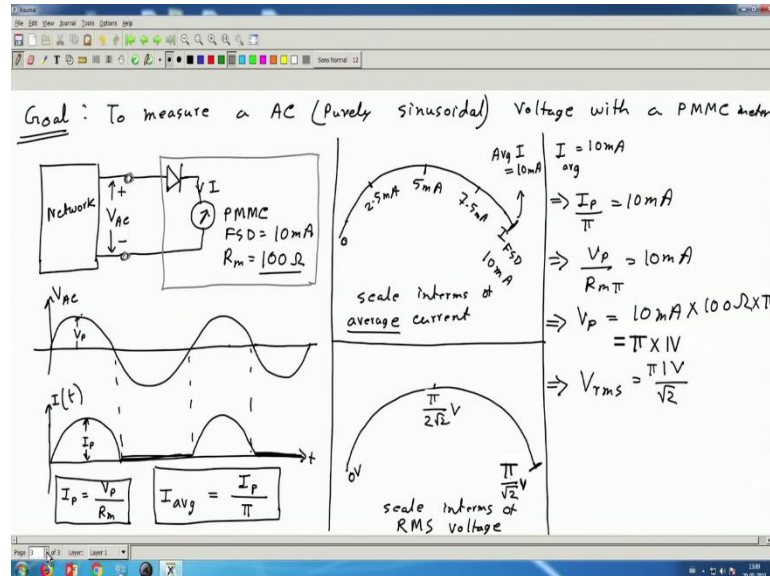 Journal
File Edit View Journal Tools Options Help
Sans Normal 12
Goal : To measure a AC (Purely sinusoidal) Voltage with a PMMC meter
Network
+
V_AC
-
I
PMMC
FSD = 10mA
R_m = 100 Ω
V_AC
V_P
I(t)
I_P
t
I_P = V_P / R_m
I_avg = I_P / π
0
2.5mA
5mA
7.5mA
Avg I
= 10mA
I_FSD
10mA
scale interms of
average current
0V
π / 2√2 V
π / √2 V
scale interms of
RMS voltage
I_avg = 10mA
⇒ I_P / π = 10mA
⇒ V_P / R_m π = 10mA
⇒ V_P = 10mA × 100Ω × π
= π × 1V
⇒ V_rms = π 1V / √2
Page 3 of 3 Layer: Layer 1
13:09